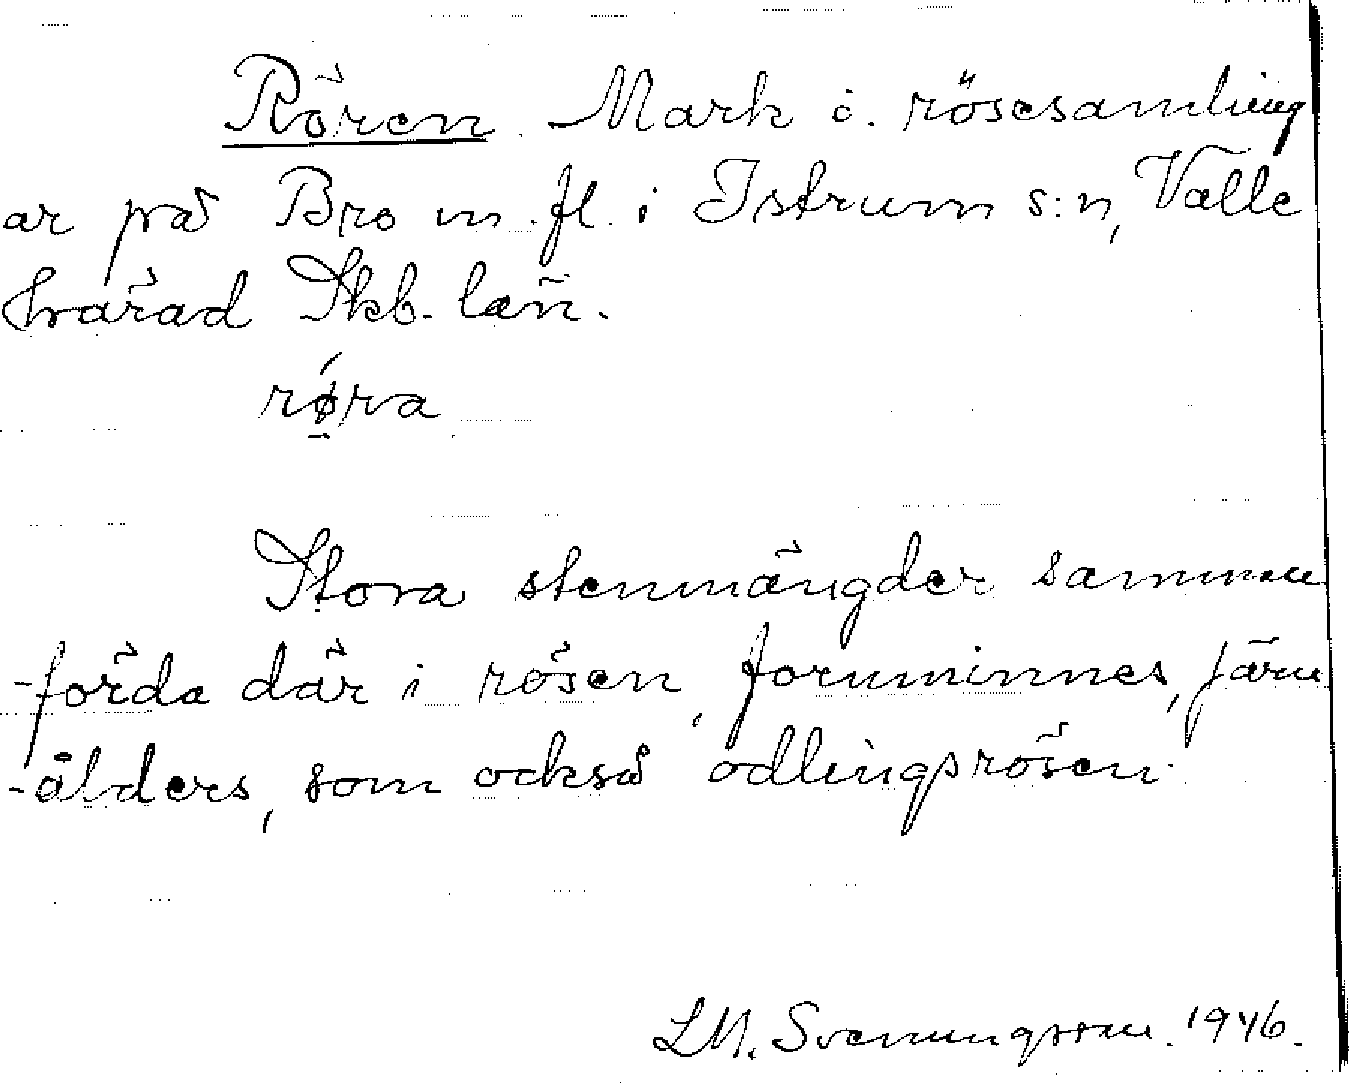 Rören. Mark o. rösesamling
ar på Bro m. fl. i Istrum s:n, Valle
härad Skb. län.
røra
Stora stenmängder samman
-förda där i rösen, fornminnes, järn
-ålders, som också odlingsrösen.
LM. Svenungsson. 1946.